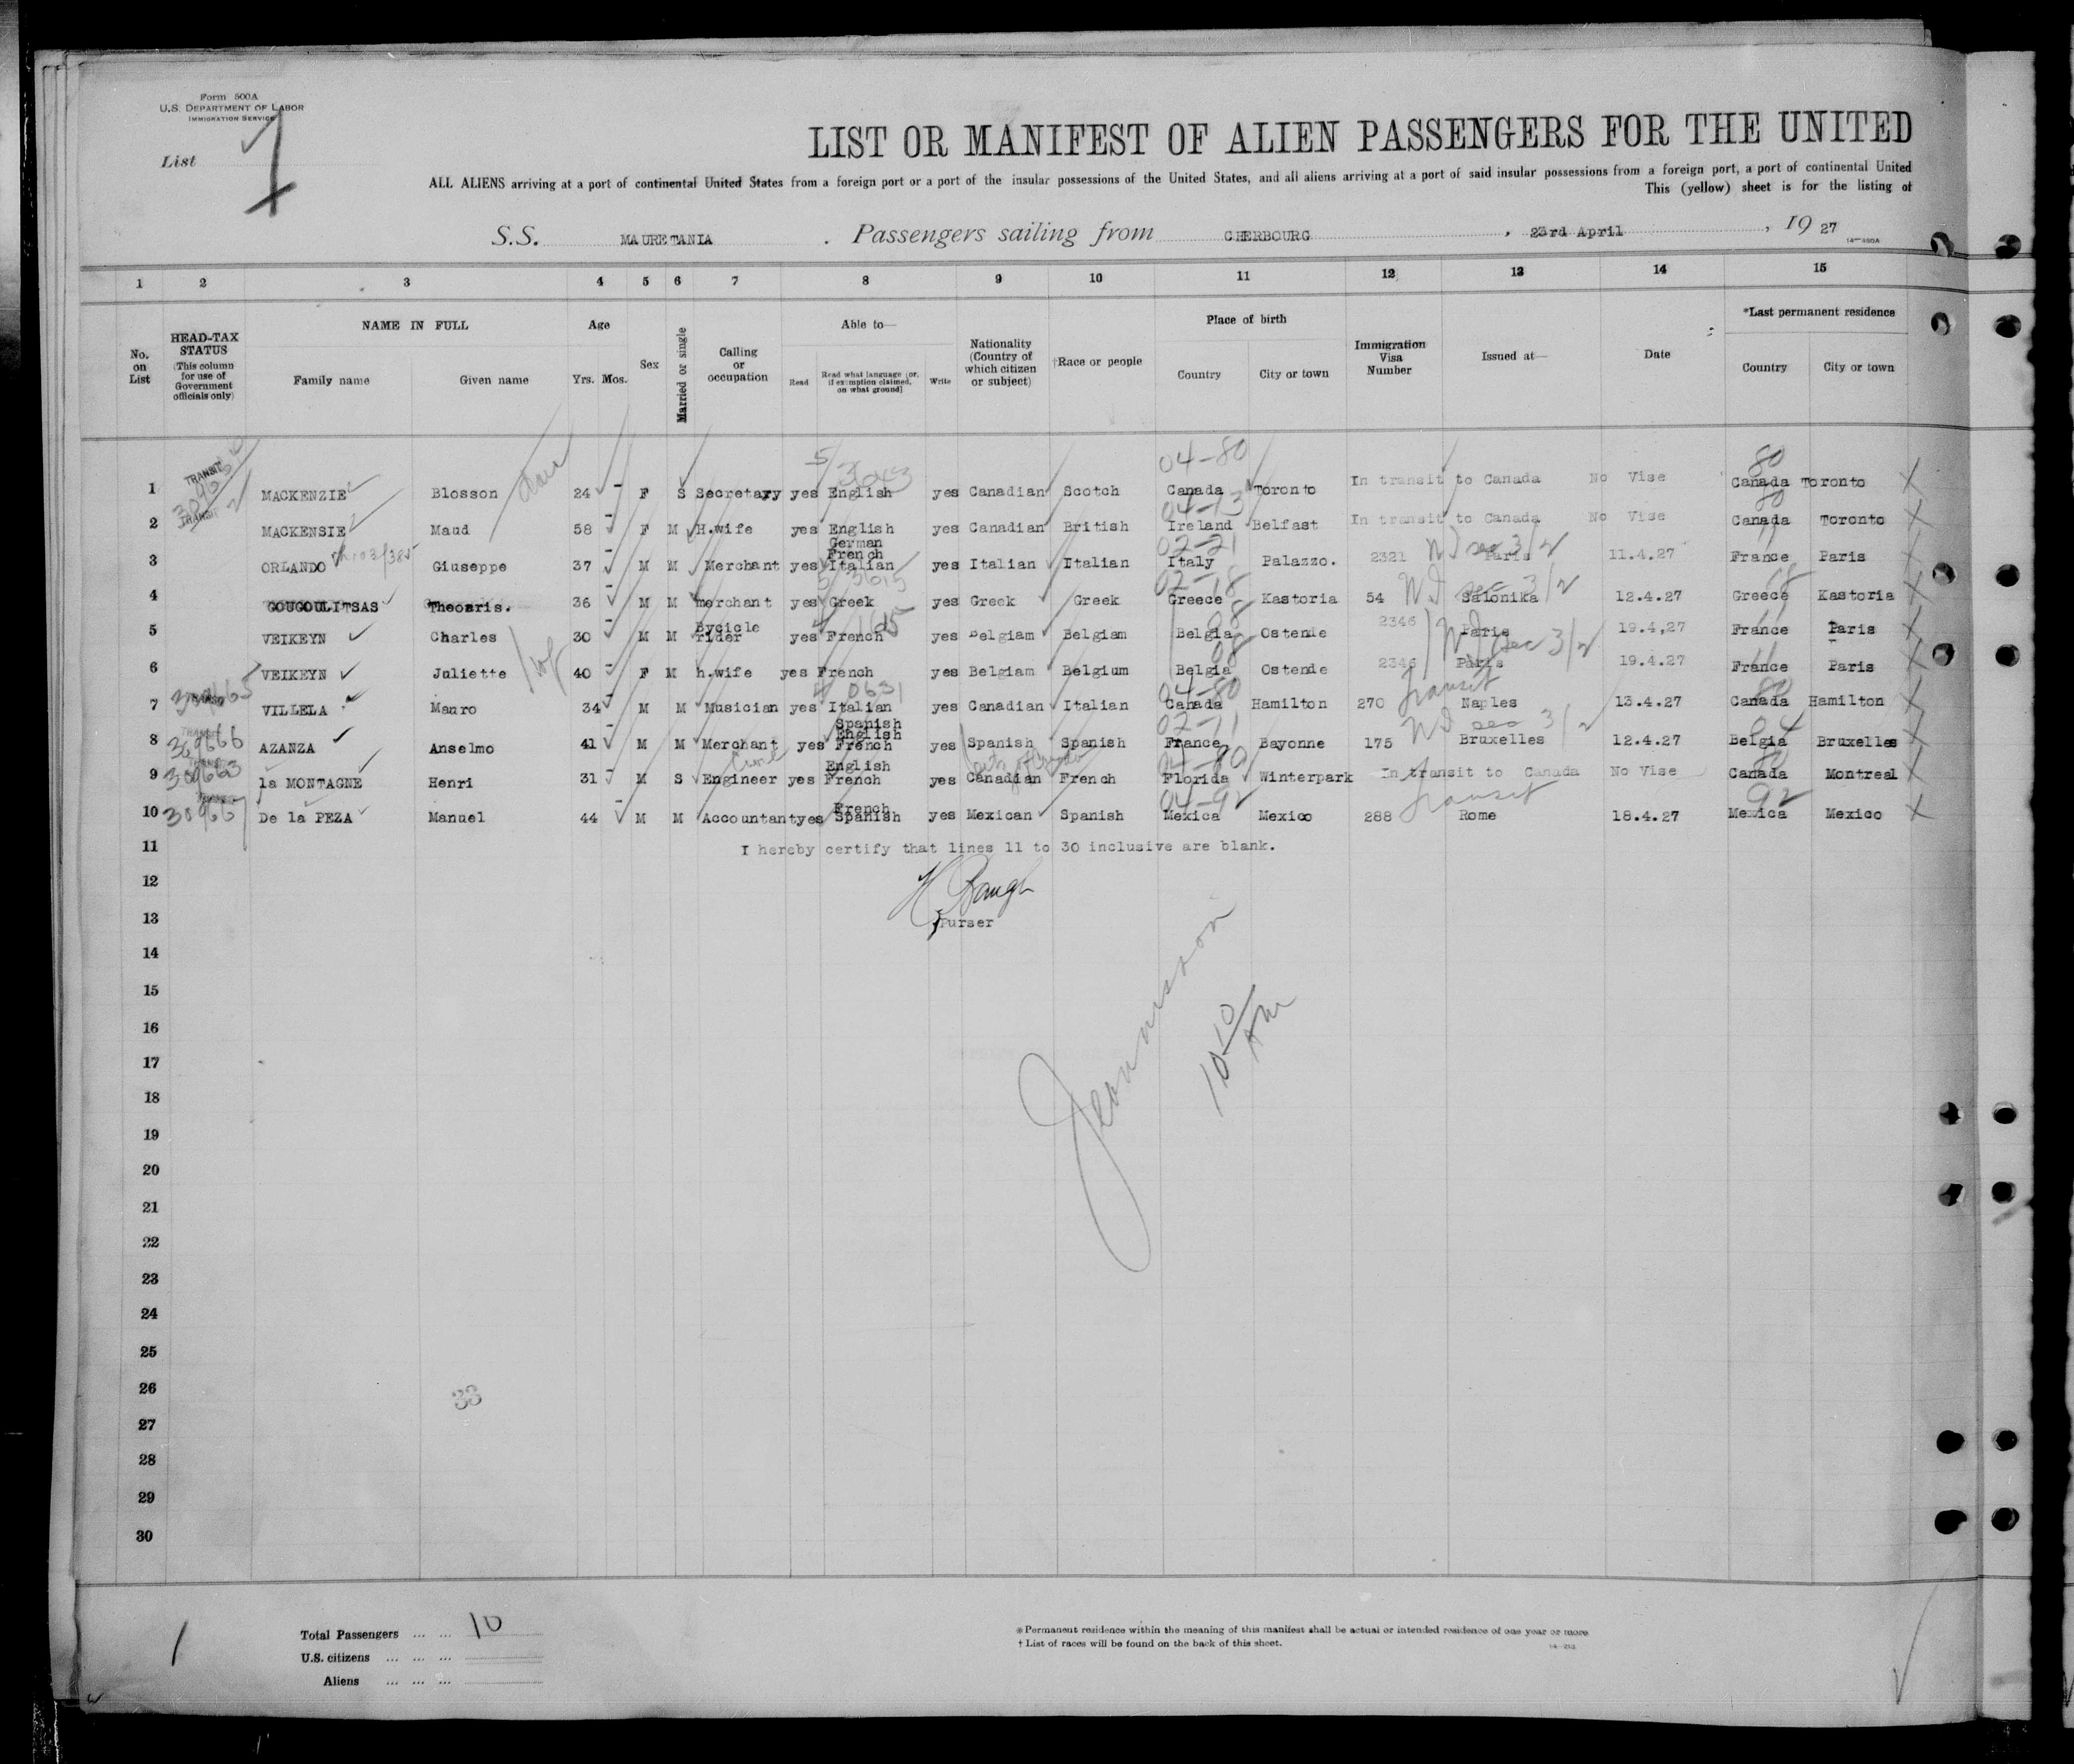 Form 500A
U.S. DEPARTMENT OF LABOR
IMMIGRATION SERVICE
List 1
LIST OR MANIFEST OF ALIEN PASSENGERS FOR THE UNITED
ALL ALIENS arriving at a port of continental United States from a foreign port or a port of the insular possessions of the United States, and all aliens arriving at a port of said insular possessions from a foreign port, a port of continental United
This (yellow) sheet is for the listing of
S.S. MAURETANIA . Passengers sailing from CHERBOURG , 23rd April , 19 27
1 2 3 4 5 6 7 8 9 10 11 12 13 14 15
No. on List
HEAD-TAX STATUS (This column for use of Government officials only)
NAME IN FULL
Family name Given name
Age
Yrs. Mos.
Sex
Married or single
Calling or occupation
Able to—
Read Read what language [or, if exemption claimed, on what ground] Write
Nationality (Country of which citizen or subject)
†Race or people
Place of birth
Country City or town
Immigration Visa Number
Issued at—
Date
*Last permanent residence
Country City or town
04-80 80
1 TRANSIT MACKENZIE Blosson 24 F S Secretary yes English yes Canadian Scotch Canada Toronto In transit to Canada No Vise Canada Toronto
04-13 80
2 TRANSIT MACKENSIE Maud 58 F M H.wife yes English yes Canadian British Ireland Belfast In transit to Canada No Vise Canada Toronto
02-21
3 ORLANDO Giuseppe 37 M M Merchant yes German French Italian yes Italian Italian Italy Palazzo. 2321 Paris 11.4.27 France Paris
02-18 3615
4 GOUGOULITSAS Theoaris. 36 M M merchant yes Greek yes Greek Greek Greece Kastoria 54 Salonika 12.4.27 Greece Kastoria
5 VEIKEYN Charles 30 M M Bycicle rider yes French yes Belgiam Belgiam Belgia Ostende 2346 Paris 19.4,27 France Paris
08
6 VEIKEYN Juliette 40 F M h.wife yes French yes Belgiam Belgium Belgia Ostende 2346 Paris 19.4.27 France Paris
0631 04-80 Transit 80
7 VILLELA Mauro 34 M M Musician yes Italian yes Canadian Italian Canada Hamilton 270 Naples 13.4.27 Canada Hamilton
02-11 04
8 309666 AZANZA Anselmo 41 M M Merchant yes Spanish English French yes Spanish Spanish France Bayonne 175 Bruxelles 12.4.27 Belgia Bruxelles
80
9 309663 la MONTAGNE Henri 31 M S Civil Engineer yes English French yes Canadian French Florida Winterpark In transit to Canada No Vise Canada Montreal
04-92 Transit 92
10 309667 De la PEZA Manuel 44 M M Accountant yes French Spanish yes Mexican Spanish Mexica Mexico 288 Rome 18.4.27 Mexica Mexico
11 I hereby certify that lines 11 to 30 inclusive are blank.
12
13 Purser
14
15
16
17
18
19
20
21
22
23
24
25
26
27
28
29
30
10 10 AM
33
Total Passengers ... ... 10
U.S. citizens ... ... ...
Aliens ... ... ...
1
*Permanent residence within the meaning of this manifest shall be actual or intended residence of one year or more
† List of races will be found on the back of this sheet.